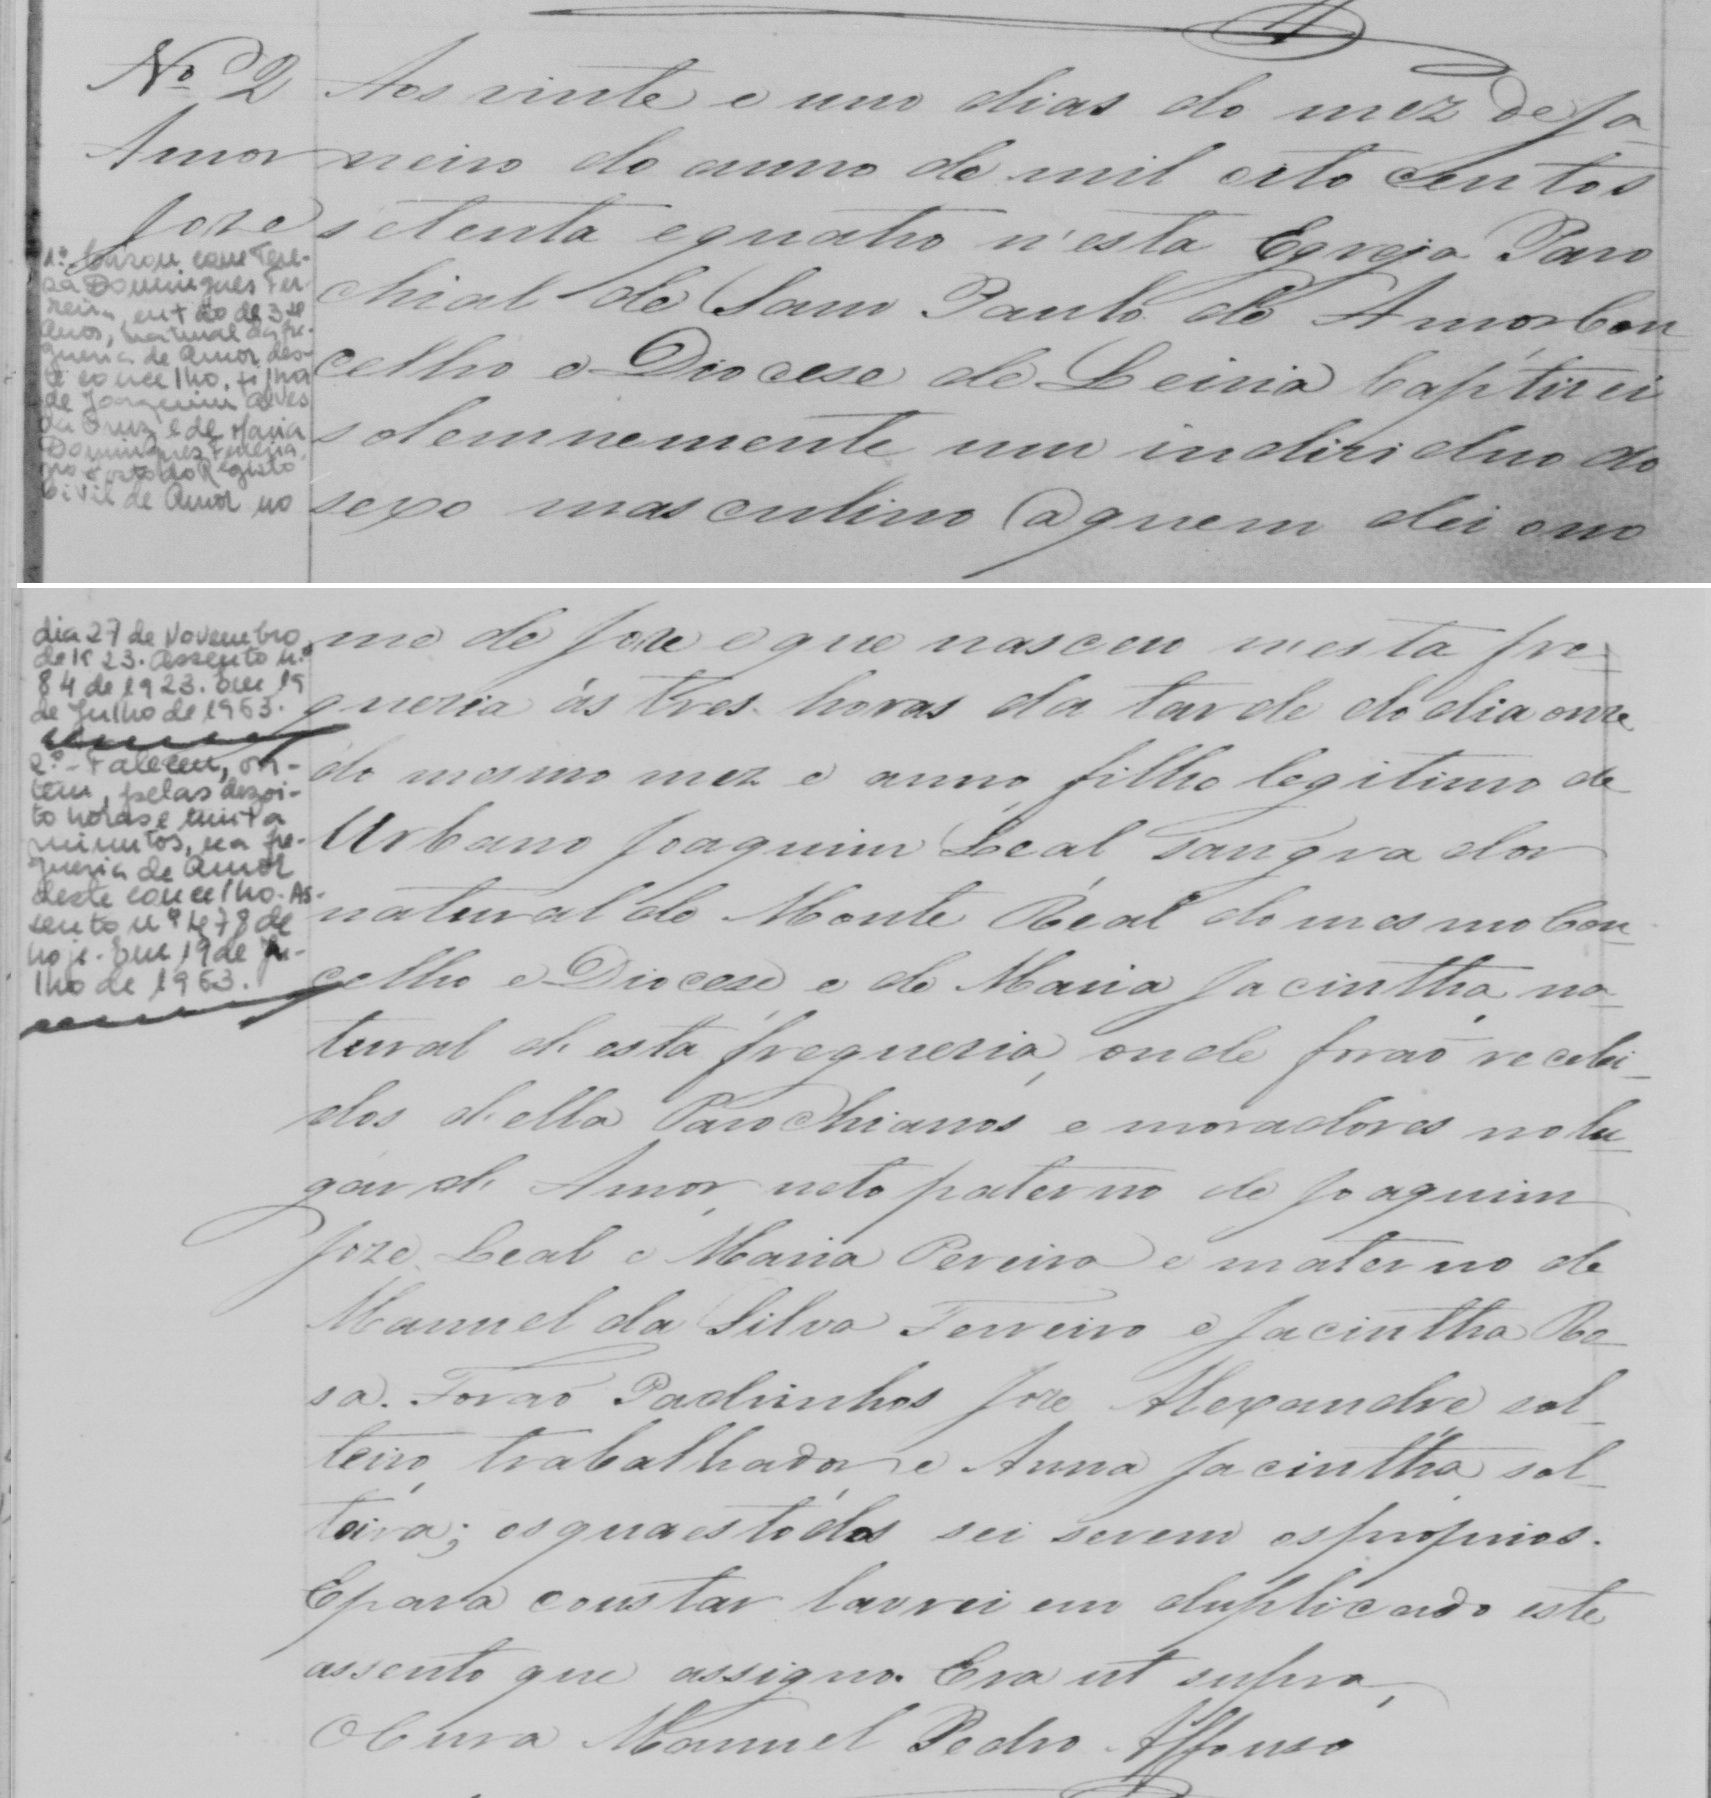 Nº 2
Amor
Joze
1º. Casou com Tere-
sa Domingues Fer-
reira, então de 3
anos, natural da fre-
guesia de Amor des-
te concelho, filha
de Joaquim Alves
da Cruz e de Maria
Domingues Ferreira,
no Posto do Registo
Civil de Amor no
Aos vinte e um dias do mez de Ja
neiro do anno de mil oito centos
setenta e quatro n'esta Egreja Paro
chial de Sam Paulo de Amor Con
celho e Diocese de Leiria baptizei
solemnemente um individuo do
sexo masculino a quem dei o no
dia 27 de Novembro
de 1923. Assento n.º
84 de 1923. Em 19
de Julho de 1963.
2º - Faleceu, on-
tem, pelas dezoi-
to horas e trinta
minutos, na fre-
guesia de Amor
deste concelho. As-
sento nº 478 de
hoje. Em 19 de Ju-
lho de 1963.
me de Joze e que nasceu n'esta fre-
guezia ás tres horas da tarde do dia onze
do mesmo mez e anno filho legitimo de
Urbano Joaquim Leal, sangrador
natural de Monte Real do mesmo Con
celho e Diocese e de Maria Jacintha, na
tural d'esta freguezia, onde forão recebi-
dos d'ella Parochianos e moradores no lu
gar d' Amor, neto paterno de Joaquim
Joze Leal e Maria Pereira e materno de
Manuel da Silva Ferreiro e Jacintha Ro
sa. Forão Padrinhos Joze Alexandre sol
teiro, trabalhador e Anna Jacintha, sol
teira; os quaes todos sei serem os proprios.
E para constar lavrei em duplicado este
assento que assigno. Era ut supra,
O Cura Manuel Pedro Affonso